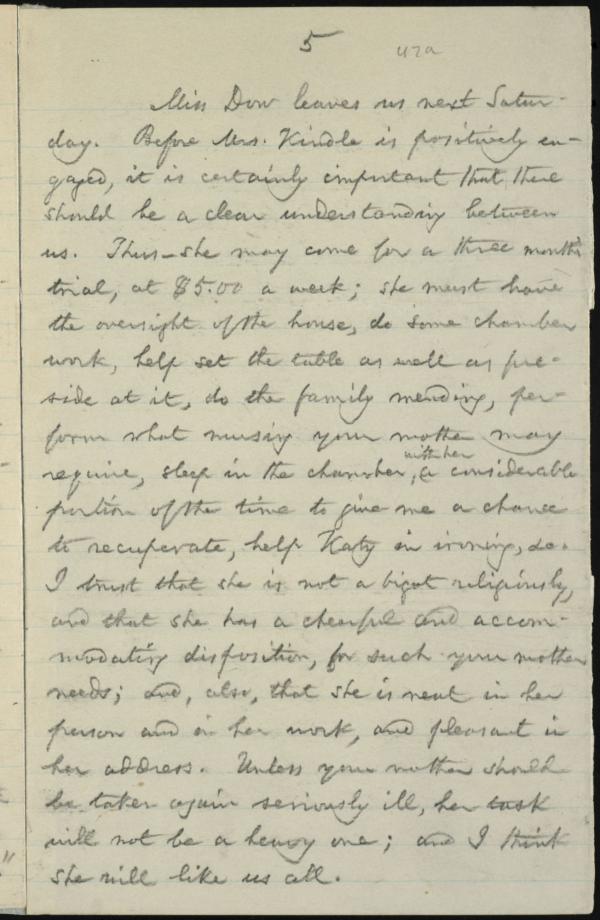 5
47a
Miss Dow leaves us next Satur-
day. Before Mrs. Kindle is positively en-
gaged, it is certainly important that there
should be a clear understanding between
us. Thus—she may come for a three month's
trial, at $5.00 a week; she must have
the oversight of the house, do some chamber
work, help set the table as well as pre-
side at it, do the family mending, per-
form what nursing your mother may
require, sleep in the chamber, with her a considerable
portion of the time to give me a chance
to recuperate, help Katy in ironing, &c.
I trust that she is not a bigot religiously,
and that she has a cheerful and accom-
modating disposition, for such your mother
needs; and, also, that she is neat in her
person and in her work, and pleasant in
her address. Unless your mother should
be taken again seriously ill, her task
will not be a heavy one; and I think
she will like us all.